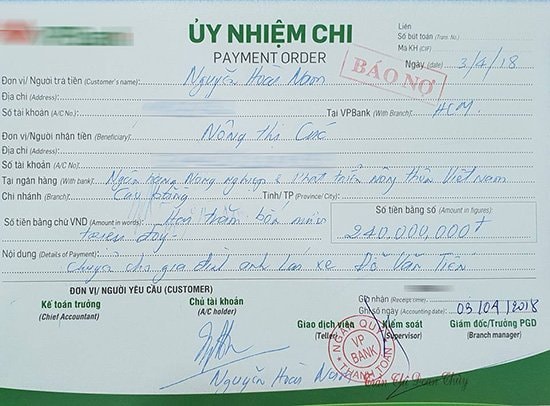 ỦY NHIỆM CHI
PAYMENT ORDER
Liên
Số bút toán (Trans. No.)
Mã KH (CIF)
Ngày (date) 3/4/18
BÁO NỢ
Đơn vị/Người trả tiền (Customer's name): Nguyễn Hoài Nam
Địa chỉ (Address):
Số tài khoản (A/C No.) Tại VPBank (With Branch): HCM.
Đơn vị/Người nhận tiền (Beneficiary): Nông Thị Cúc
Địa chỉ (Address):
Số tài khoản (A/C No)
Tại ngân hàng (With bank): Ngân hàng Nông nghiệp & Phát triển nông thôn Việt Nam
Chi nhánh (Branch) Cao Bằng Tỉnh/ TP (Province/ City):
Số tiền bằng chữ VND (Amount in words): Hai trăm bốn mươi
triệu đồng.
Số tiền bằng số (Amount in figures):
240,000,000đ
Nội dung (Details of Payment): Chuyển cho gia đình anh lái xe Đỗ Văn Tiến
ĐƠN VỊ/ NGƯỜI YÊU CẦU (CUSTOMER)
Kế toán trưởng
(Chief Accountant)
Chủ tài khoản
(A/C holder)
Nguyễn Hoài Nam
Giờ nhận (Receipt time):
Ghi sổ ngày (Accounting date): 03/04/2018
Giao dịch viên
(Teller)
Kiểm soát
(Supervisor)
Giám đốc/Trưởng PGD
(Branch manager)
NGÂN QUỸ
VP
BANK
THANH TOÁN